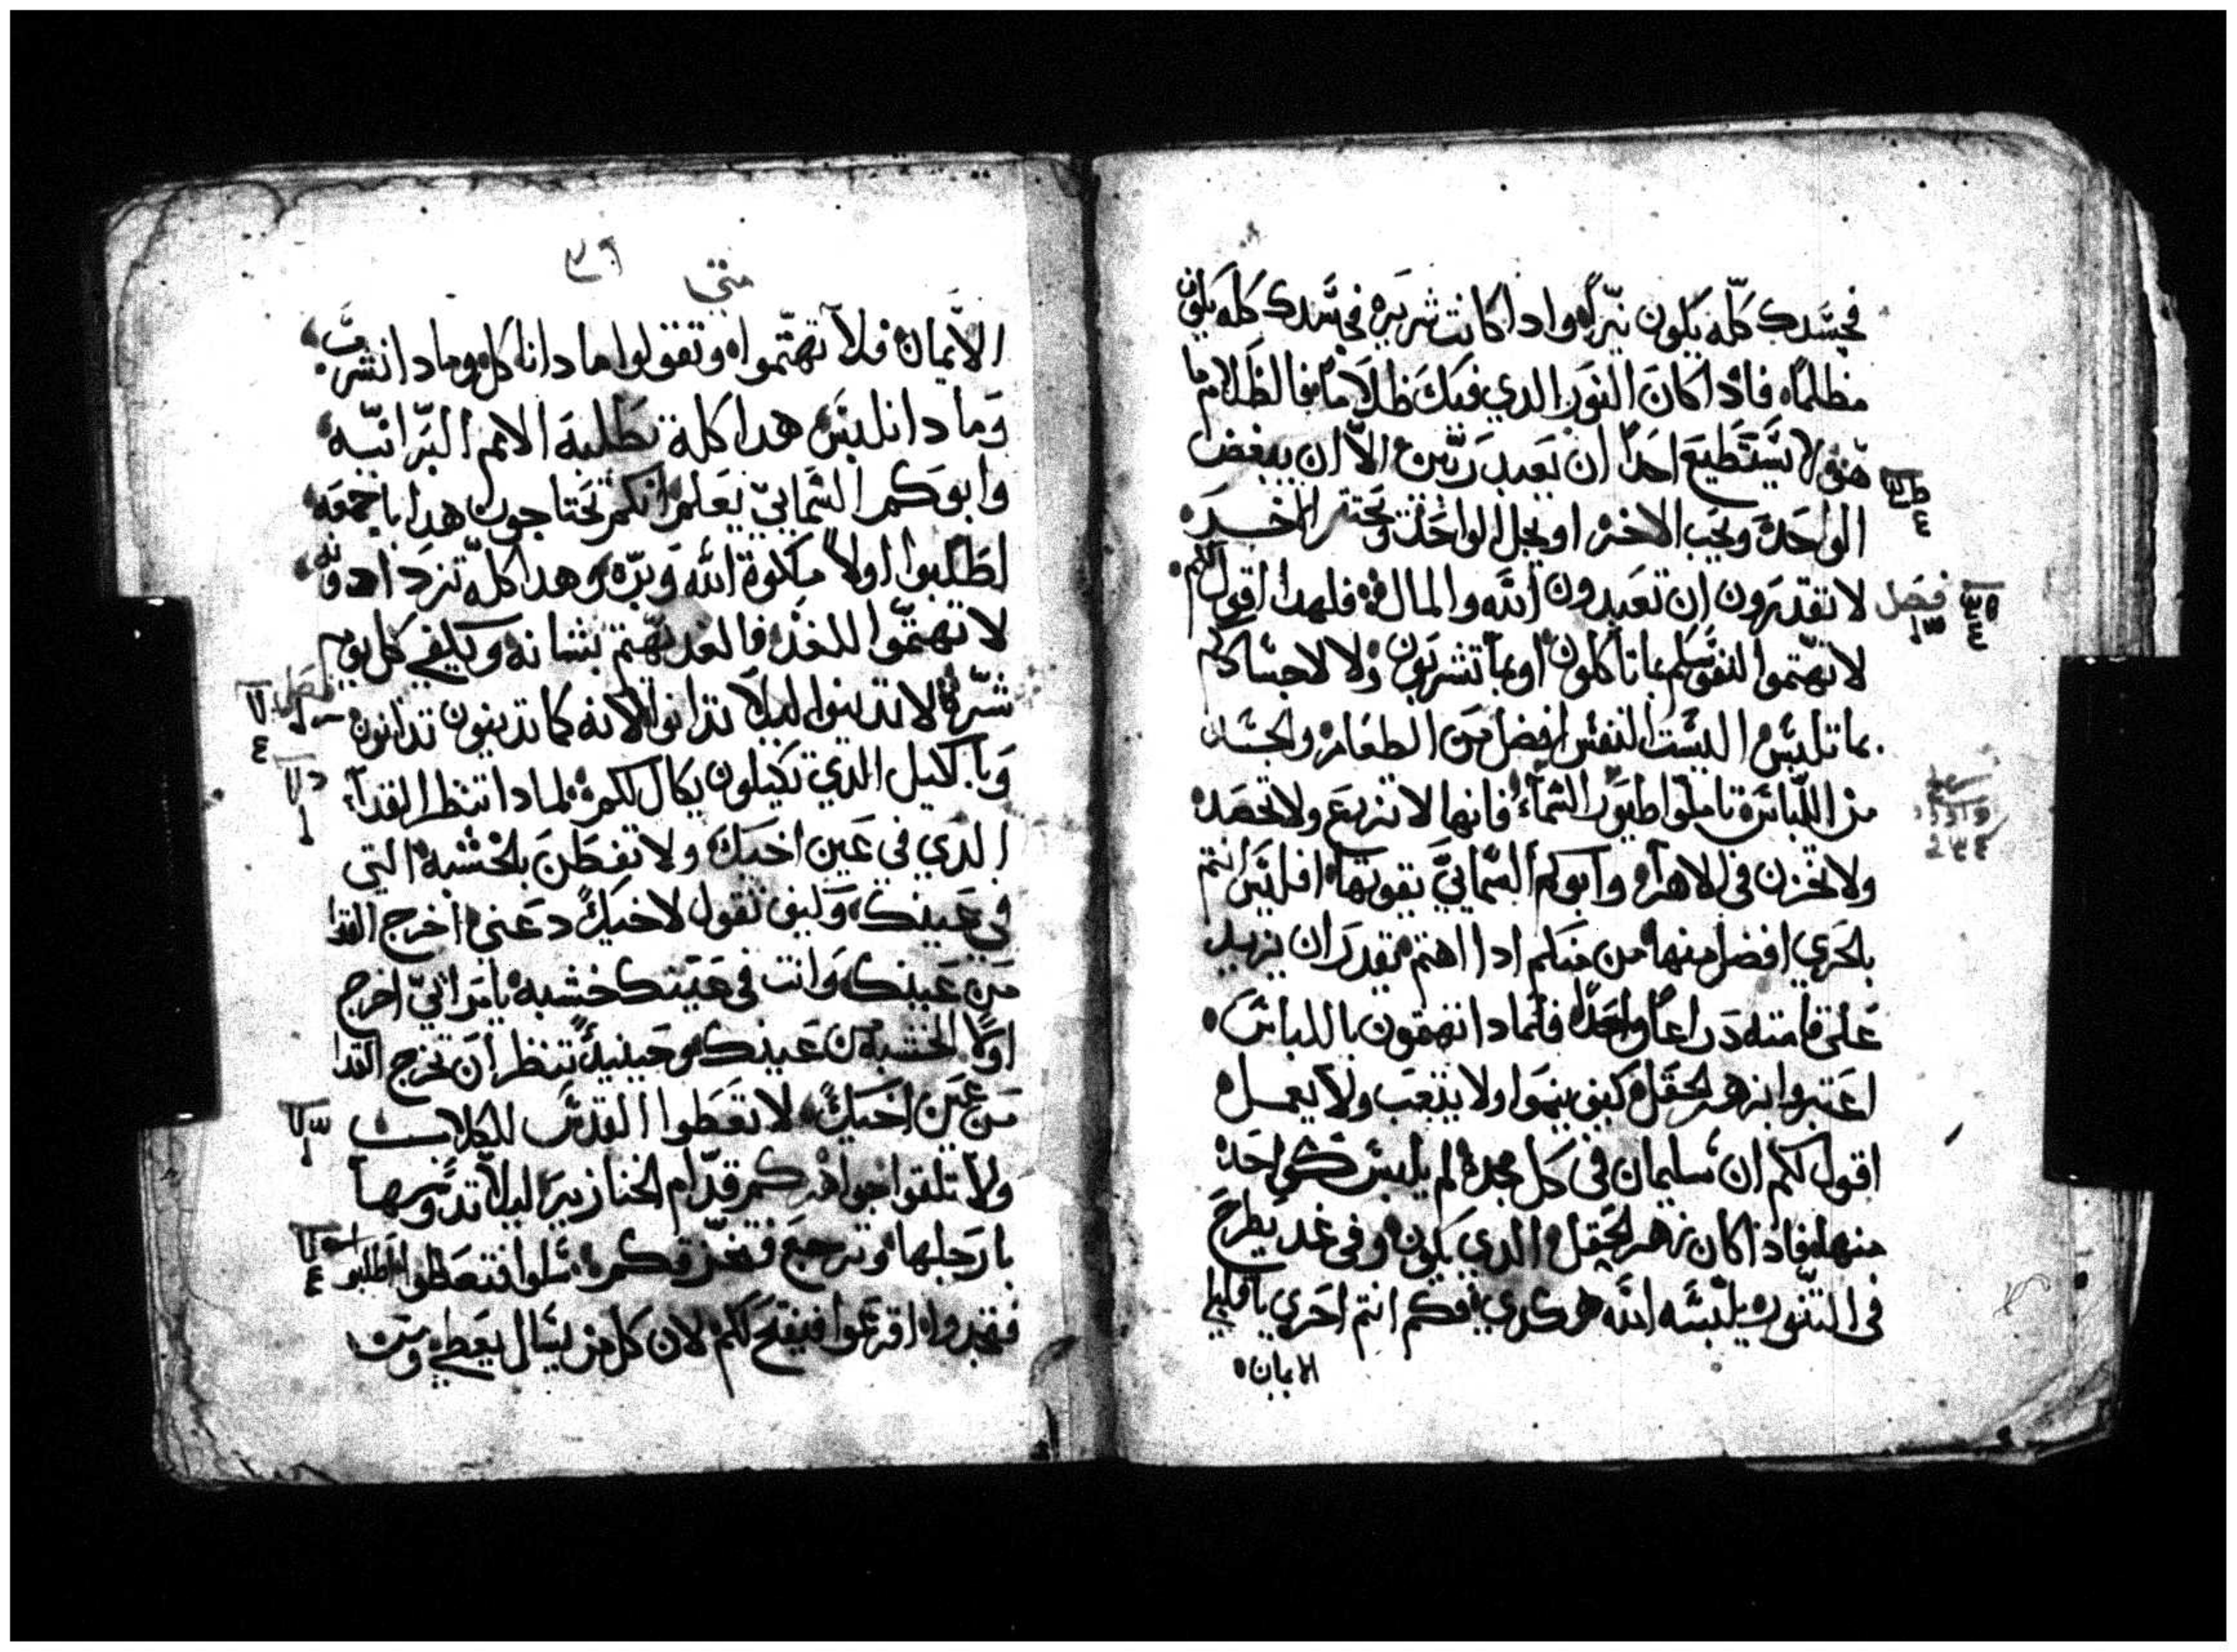 فجسدك كله يكون نيراً واداكانت شريره فجسدك كله يكون
مظلماً فاداكان النور الدي فيك ظلاماً فالظلام ما
هو لا يستطيع احداً ان يعبد ربين الا ان يبغض
الواحد ويحب الاخر او يجل الواحد ويحتقر الاخر
لا تقدرون ان تعبدون الله والمال فلهدا اقول لكم
فصل
لا تهتموا لنفوسكم بما تاكلون او بما تشربون ولا لاجسادكم
بما تلبس اليست النفس افضل من الطعام والجسد
من اللباس تاملوا طيور السماء فانها لا تزرع ولا تحصد
ولا تخزن في الاهراء وابوكم السمايي يقوتها افليس انتم
بالحري افضل منها من منكم ادا اهتم يقدر ان يزيد
على قامته دراعاً واحداً فلمادا تهتمون باللباس
اعتبروا بزهر الحقل كيف ينموا ولا يتعب ولا يعمل
اقول لكم ان سليمان في كل مجده لم يلبس كواحد
منها فاداكان زهر الحقل الدي يكون وفي غد يطرح
في التنور يلبسه الله هكدي فكم انتم احري يا قليلي
الايمان
متي
الايمان فلا تهتموا وتقولوا مادا ناكل ومادا نشرب
ومادا نلبس هدا كله تطلبه الامم البرانيه
وابوكم السمايي يعلم انكم تحتاجون هدا باجمعه
اطلبوا اولاً ملكوة الله وبره وهدا كله تزدادونه
لا تهتموا للغد فالغد يهتم بشانه ويكفي كل يوم
شره لا تدينوا ليلا تدانوا لانه كما تدينون تدانون
فصل
وبالكيل الدي تكيلون يكال لكم لمادا تنظر القداء
الدي في عين اخيك ولا تفطن بالخشبه التي
في عينك وكيف تقول لاخيك دعني اخرج القدا
من عينك وانت في عينك خشبه يا مرائي اخرج
اولاً الخشبه من عينك وحينيدٍ تنظر ان تخرج القدا
من عين اخيك لا تعطوا القدس للكلاب
ولا تلقوا جواهركم قدام الخنازير ليلا تدوسها
بارجلها وترجع فتخزقكم سلوا فتعطوا اطلبوا
فتجدوا اقرعوا فيفتح لكم لان كل من يسال يعطي ومن